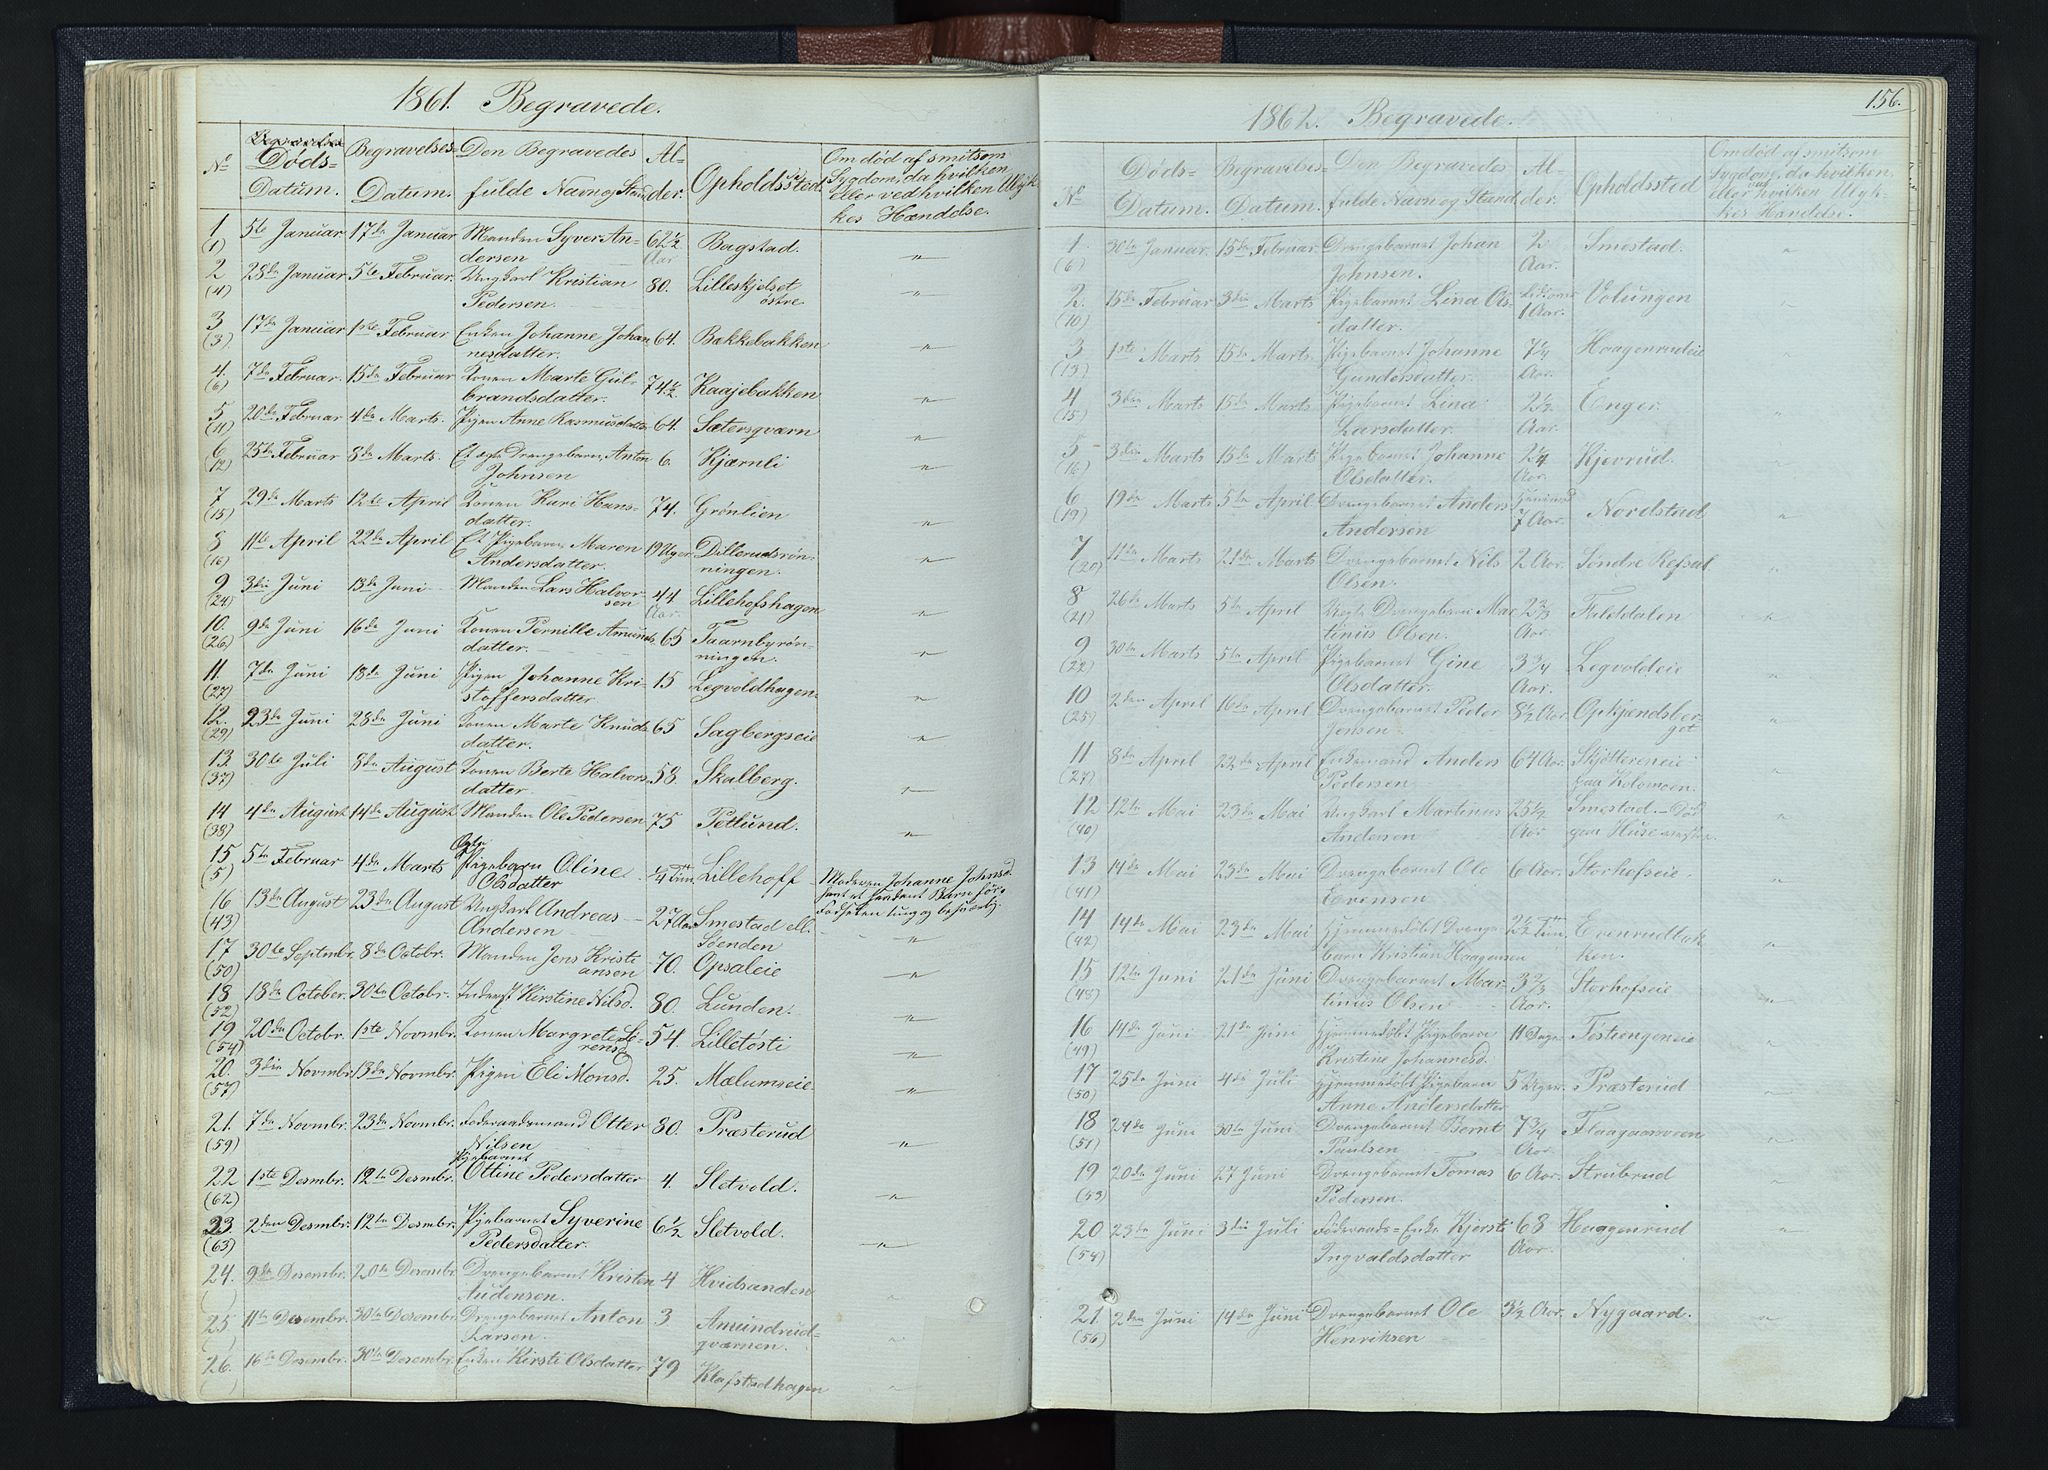 1861. Begravede.
No
Døds-Datum.
Begravelses Datum.
Den Begravedes fulde Navn og Stand
Alder.
Opholdssted.
Om død af smitsom Sygdom, da hvilken eller ved hvilken Ulykkes Hændelse.
1 (1) 5te Januar. 17de Januar Manden Syver Andersen 62 1/2 Aar Bagstad. "
2 (4) 28de Januar 5te Februar. Ungkarl Kristian Pedersen 80. Lilleskjelset østre "
3 (3) 17de Januar 1ste Februar Enken Johanne Johannesdatter. 64. Bakkebakken "
4. (6) 7de Februar. 15de Februar Konen Marte Gulbrandsdatter. 74 1/2 Kaajebakken "
5 (11) 20de Februar 4de Marts. Pigen Anne Rasmusdatter 64. Sætersqværn "
6 (12) 25de Februar 8de Marts. Et ægte Drengebarn, Anton Johnsen 6. Kjærnli "
7 (15) 29de Marts 12te April Konen Kari Hansdatter. 74. Grønlien "
8 (16) 11te April 22de April Et Pigebarn Maren Andersdatter. 19 Uger Dillerudsrønningen. "
9 (24) 3die Juni 13de Juni Manden Lars Halvorsen 44 Aar Lillehofshagen "
10. (26) 9de Juni 16de Juni Konen Pernille Amundsdatter. 65 Taarnbyrønningen. "
11. (27) 7de Juni 18de Juni Pigen Johanne Kristoffersdatter 15 Legvoldhagen "
12. (29) 23de Juni 28de Juni Konen Marte Knudsdatter. 65 Sagbergseie "
13. (37) 30te Juli 8de August Konen Berte Halvorsdatter. 58 Skalberg. "
14 (38) 4de August 14de August Manden Ole Pedersen 75 Petlund. "
15 (5) 5te Februar 4de Marts Ægte Pigebarn Oline Olsdatter 1/4 Tim. Lillehoff Moderen Johanne Johnsd. Barn før Fødselen tung og besværlig.
16 (43) 13de August 23de August Ungkarl Andreas Andersen 27 Aar Smestad ell. Søenden "
17 (50) 30te Septmbr. 8de Octobr. Manden Jens Kristiansen 70. Opsaleie "
18 (52) 18de October. 30te Octobr. Inderst Kirstine Nilsd. 80. Lunden. "
19 (54) 20de Octobr. 1ste Novmbr. Konen Margrete Sørensd. 54. Lilletøsti "
20. (57) 3die Novmbr. 13de Novmbr. Pigen Eli Monsd. 25. Mælumseie. "
21. (59) 7de Novmbr. 23de Novmbr. Føderaadsmand Otter Nilsen 80. Præsterud "
22 (62) 1ste Desmbr. 12te Desmbr. Pigebarnet Ottine Pedersdatter 4. Sletvold. "
23 (63) 2den Desmbr. 12te Desmbr. Pigebarnet Syverine Pedersdatter. 6 1/2 Sletvold. "
24. 9de Desembr. 20de Desembr Drengebarnet Kristen Audensen. 4 Hvidsanden "
25 11te Desembr. 30te Desembr Drengebarnet Anton Larsen. 3 Amundrudqværnen. "
26. 16de Desembr. 30te Desembr. Enken Kirsti Olsdatter 79 Klafstadhagen "
156.
1862. Begravede.
No
Døds-Datum.
Begravelses-Datum.
Den Begravedes fulde Navn og Stand
Alder.
Opholdssted
Om død af smitsom Sygdom, da hvilken eller ved hvilken Ulykkes Handelse.
1. (6) 30te Januar. 15de Februar. Drengebarnet Johan Johnsen. 2 Aar. Smestad. "
2. (10) 15de Februar 3die Marts Pigebarnet Lina Olsdatter. 1 Aar. Volungen "
3 (13) 1ste Marts 15de Marts. Pigebarnet Johanne Gundersdatter. 7 1/4 Aar. Haagenrudeie "
4 (15) 3die Marts 15de Marts Pigebarnet Lina Larsdatter. 2 1/2 Aar. Enger. "
5 (16) 3die Marts 15de Marts Pigebarnet Johanne Olsdatter. 2 1/4 Aar. Kjevrud. "
6 (19) 19de Marts 5te April Drengebarnet Anders Andersen 7 Aar. Nordstad "
7 (20) 11te Marts 21de Marts Drengebarnet Nils Olsen. 2 Aar. Søndre Refsal "
8 (21) 26de Marts 5te April Uægte Drengebarn Martinus Olsen. 2 2/3 Aar. Falddalen "
9 (22) 30te Marts 5te April Pigebarnet Gine Olsdatter. 3 3/4 Aar. Legvoldeie "
10 (25) 2den April 16de April Drengebarnet Peder Jensen. 8 1/2 Aar. Opkjendsberget "
11 (27) 8de April 22de April Enkemand Anders Pedersen 67 Aar. Skjøttereneie paa "
12 (40) 12te Mai 23de Mai Ungkarl Martinus Andersen 25 1/2 Aar Smestad. Død paa Huse "
13 (41) 14de Mai 23de Mai Drengebarnet Ole Evensen 6 Aar. Storhofseie. "
14 (42) 14de Mai 23de Mai Hjemmedøbt Drengebarn Kristian Haagensen 2 1/2 Tim. Evenrudbakken. "
15 (48) 12te Juni 21de Juni Drengebarnet Martinus Olsen 3 2/3 Aar. Storhofseie "
16 (49) 14de Juni 21de Juni Hjemmedøbt Pigebarn Kristine Johannesd. 11 Dage Tostengeneie "
17 (50) 25de Juni 4de Juli Hjemmedøbt Pigebarn Anne Andersdatter 5 Uger. Præsterud "
18 (51) 24de Juni 30te Juni Drengebarnet Bernt Paulsen 7 3/4 Aar. Flaagaarsveen "
19 (53) 20de Juni 27 Juni Drengebarnet Tomas Pedersen. 6 Aar. Strubrud "
20 (54) 23de Juni 3die Juli Føderaads-Enke Kjersti Ingvaldsdatter 68 Aar. Haagenrud "
21. (56) 2den Juni 14de Juni Drengebarnet Ole Henriksen 3 1/2 Aar. Nygaard. "